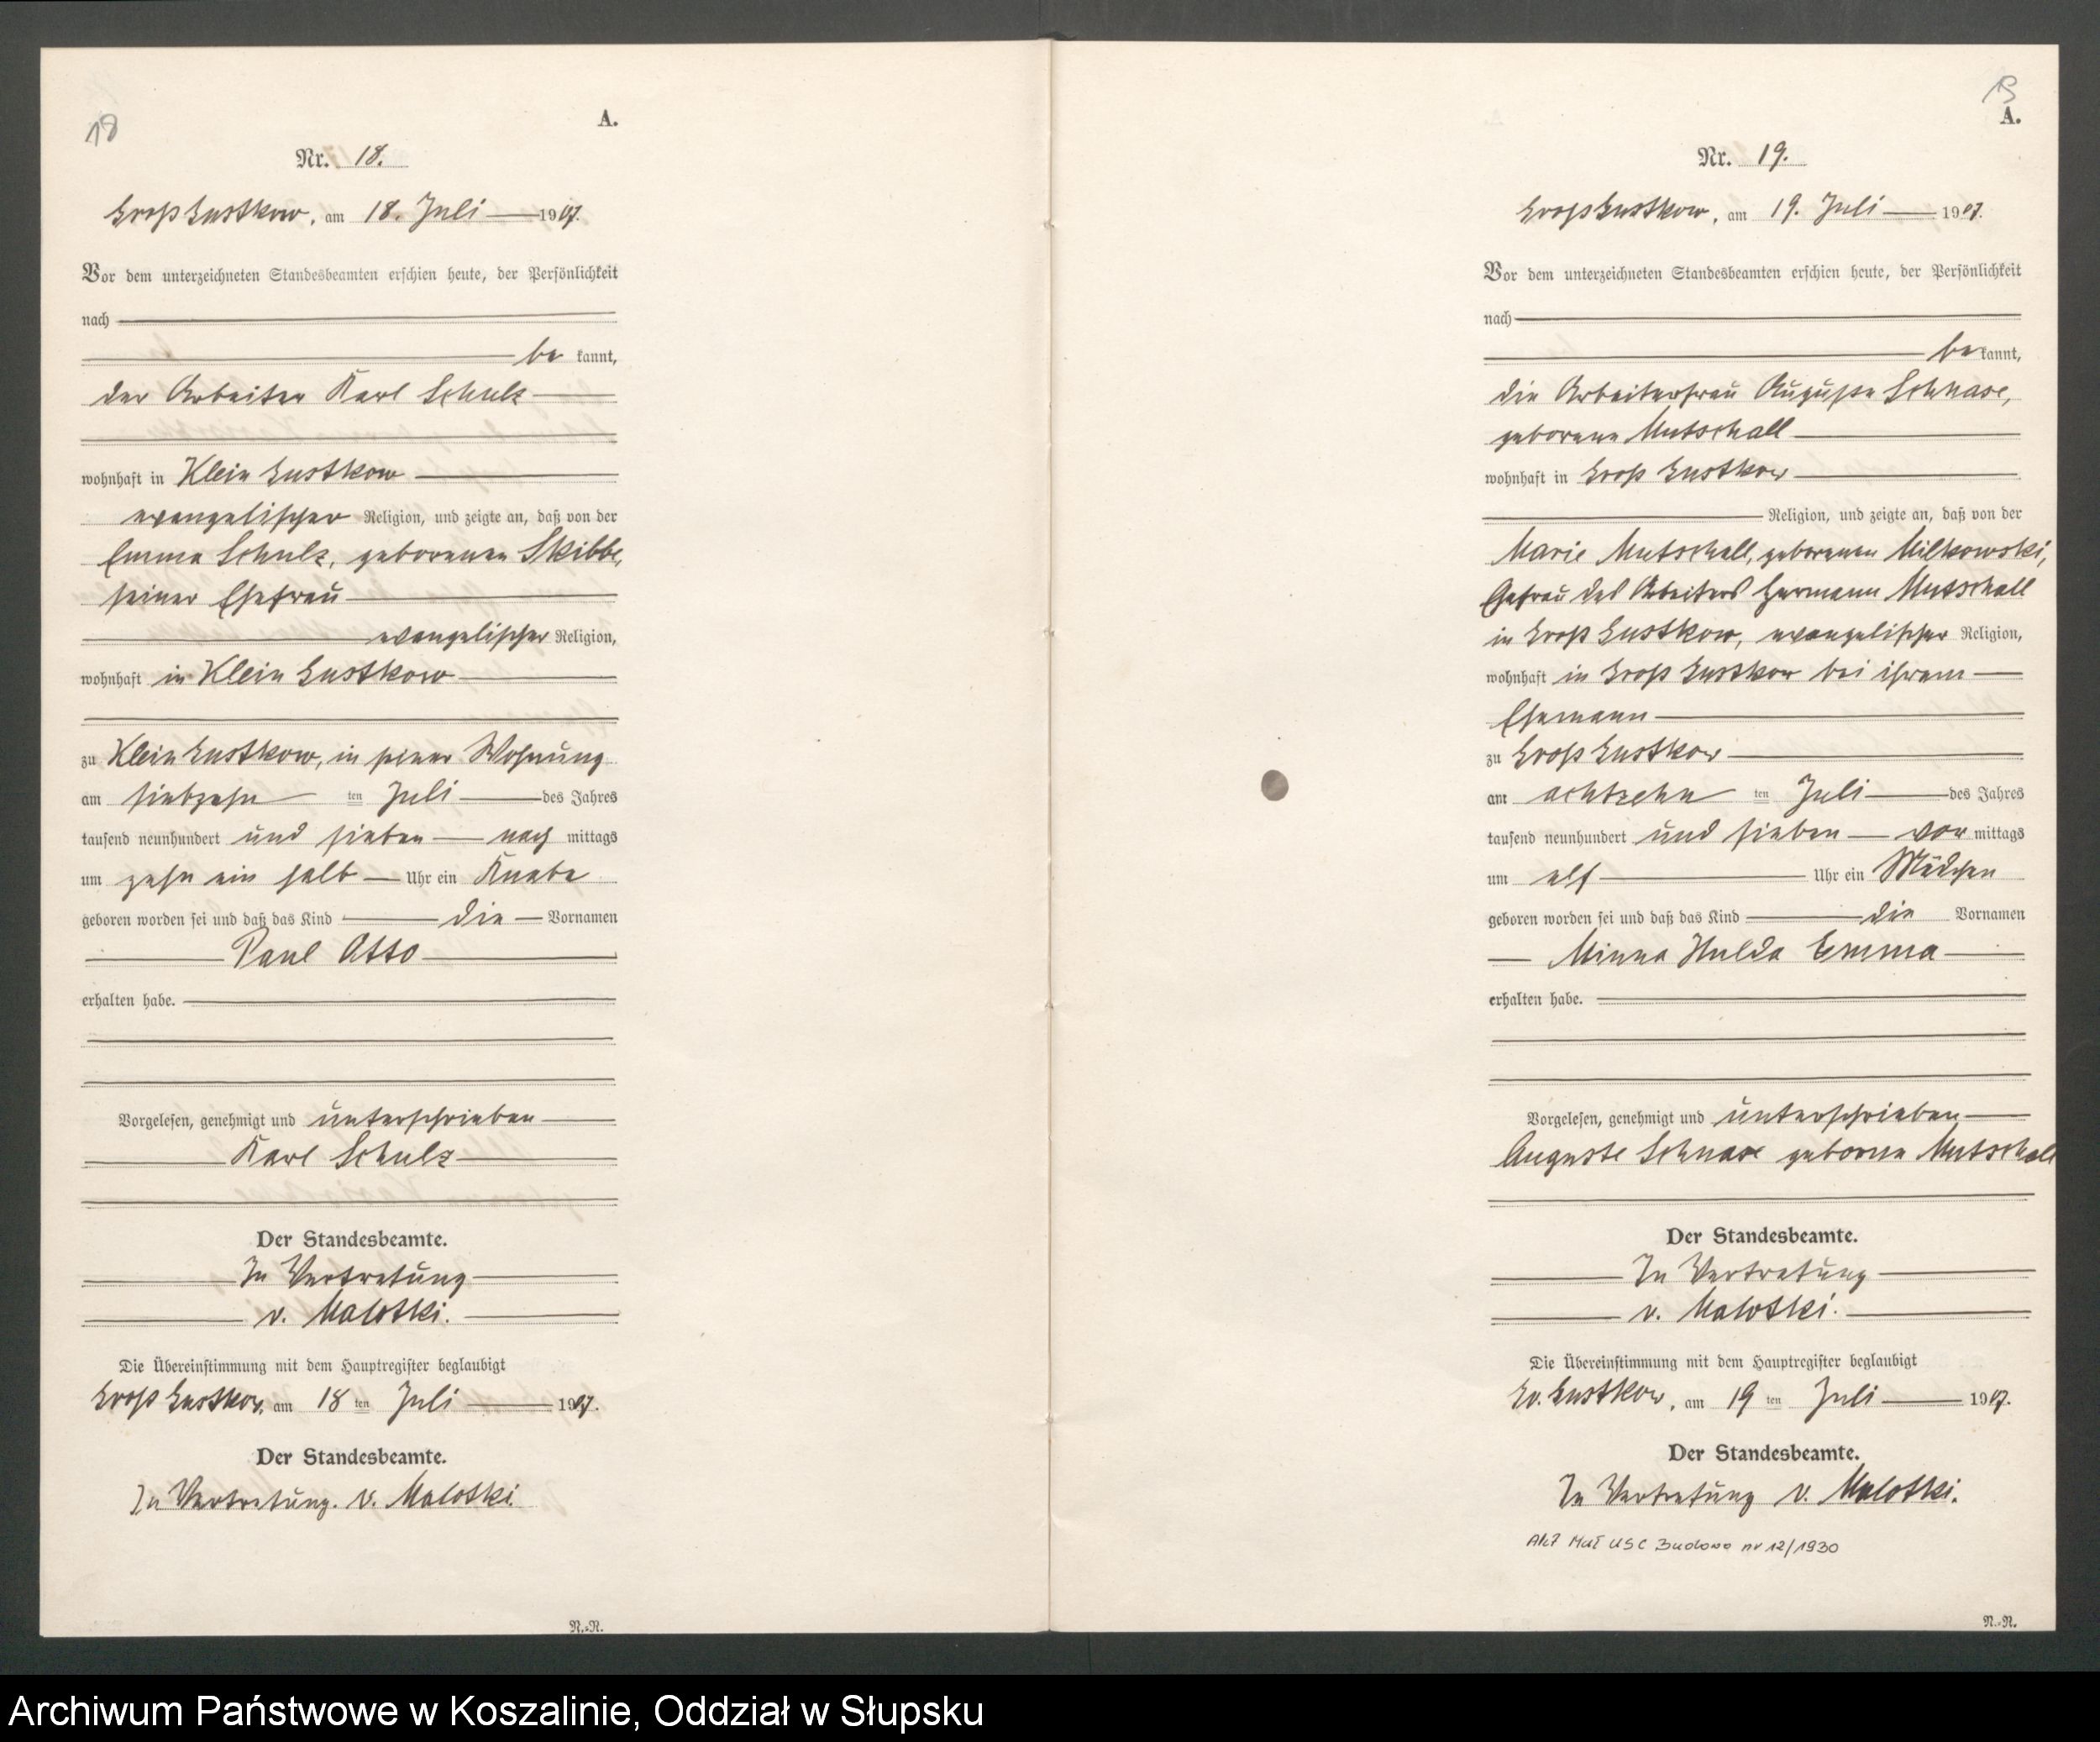 18
A.
Nr. 18.
Groß Gustkow, am 18. Juli 1907.
Vor dem unterzeichneten Standesbeamten erschien heute, der Persönlichkeit
nach
be kannt,
der Arbeiter Karl Schulz
wohnhaft in Klein Gustkow
evangelischer Religion, und zeigte an, daß von der
Emma Schulz, geborenen Skibbe,
seiner Ehefrau
evangelischer Religion,
wohnhaft in Klein Gustkow
zu Klein Gustkow, in seiner Wohnung
am siebzehn ten Juli des Jahres
tausend neunhundert und sieben nach mittags
um zehn ein halb Uhr ein Knabe
geboren worden sei und daß das Kind die Vornamen
Paul Otto
erhalten habe.
Vorgelesen, genehmigt und unterschrieben
Karl Schulz
Der Standesbeamte.
In Vertretung
v. Malotki.
Die Übereinstimmung mit dem Hauptregister beglaubigt
Groß Gustkow, am 18 ten Juli 1907.
Der Standesbeamte.
In Vertretung. v. Malotki.
N.-N.
A.
Nr. 19.
Groß Gustkow, am 19. Juli 1907.
Vor dem unterzeichneten Standesbeamten erschien heute, der Persönlichkeit
nach
be kannt,
die Arbeiterfrau Auguste Schnase,
geborene Mutschall
wohnhaft in Groß Gustkow
Religion, und zeigte an, daß von der
Marie Mutschall, geborenen Milkowski,
Ehefrau des Arbeiters Hermann Mutschall
in Groß Gustkow, evangelischer Religion,
wohnhaft in Groß Gustkow bei ihrem
Ehemann
zu Groß Gustkow
am achtzehn ten Juli des Jahres
tausend neunhundert und sieben vor mittags
um elf Uhr ein Mädchen
geboren worden sei und daß das Kind die Vornamen
Minna Hulda Emma
erhalten habe.
Vorgelesen, genehmigt und unterschrieben
Auguste Schnase geborne Mutschall
Der Standesbeamte.
In Vertretung
v. Malotki.
Die Übereinstimmung mit dem Hauptregister beglaubigt
Gr. Gustkow, am 19 ten Juli 1907.
Der Standesbeamte.
In Vertretung v. Malotki.
Akt Mał USC Budowo nr 12/1930
N.-N.
Archiwum Państwowe w Koszalinie, Oddział w Słupsku